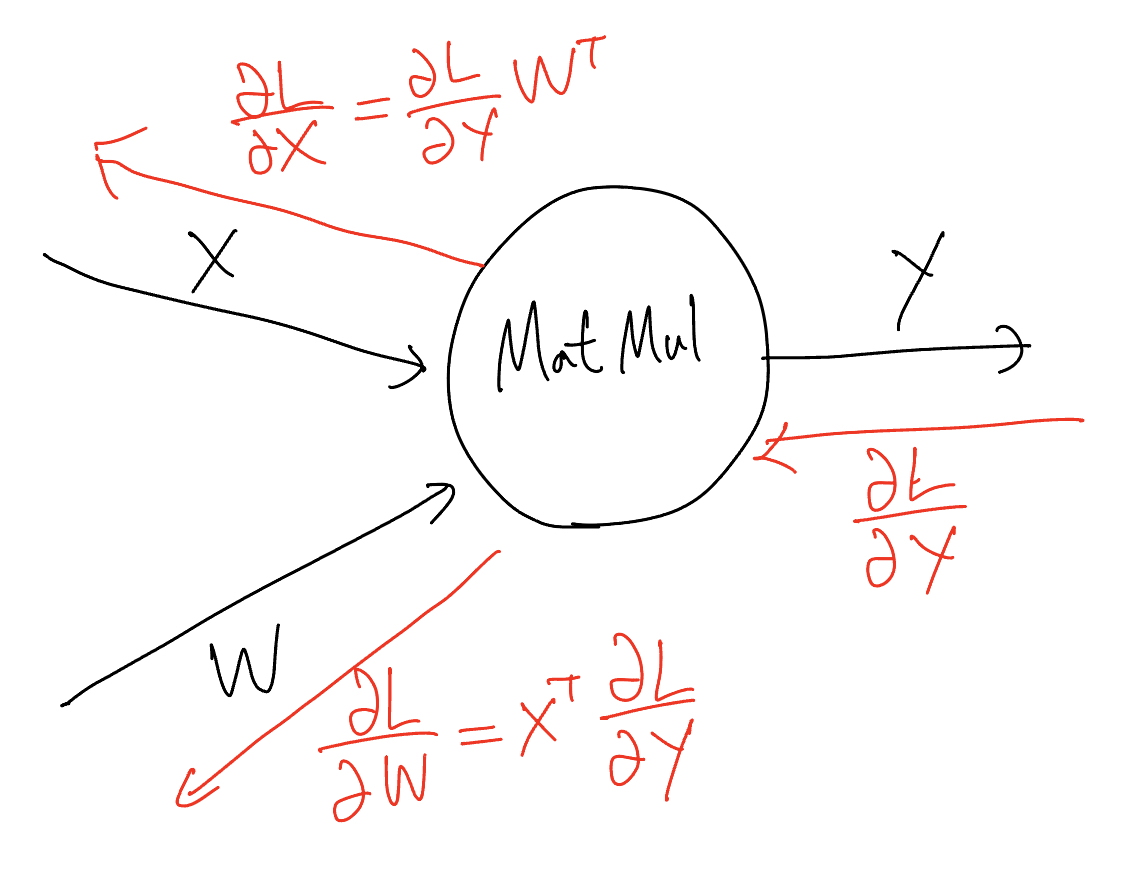 ∂L/∂X = ∂L/∂Y Wᵀ
X
Y
MatMul
∂L/∂Y
W
∂L/∂W = Xᵀ ∂L/∂Y